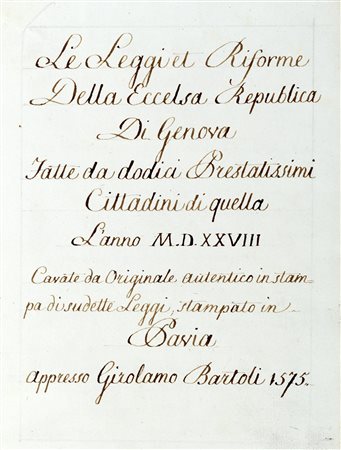 Le Leggi et Riforme
Della Eccelsa Republica
Di Genova
Fatte da dodici Prestatissimi
Cittadini di quella
L'anno M.D.XXVIII
Cavate da Originale autentico in stam-
pa di sudette Leggi, stampato in
Pavia
appresso Girolamo Bartoli 1575.